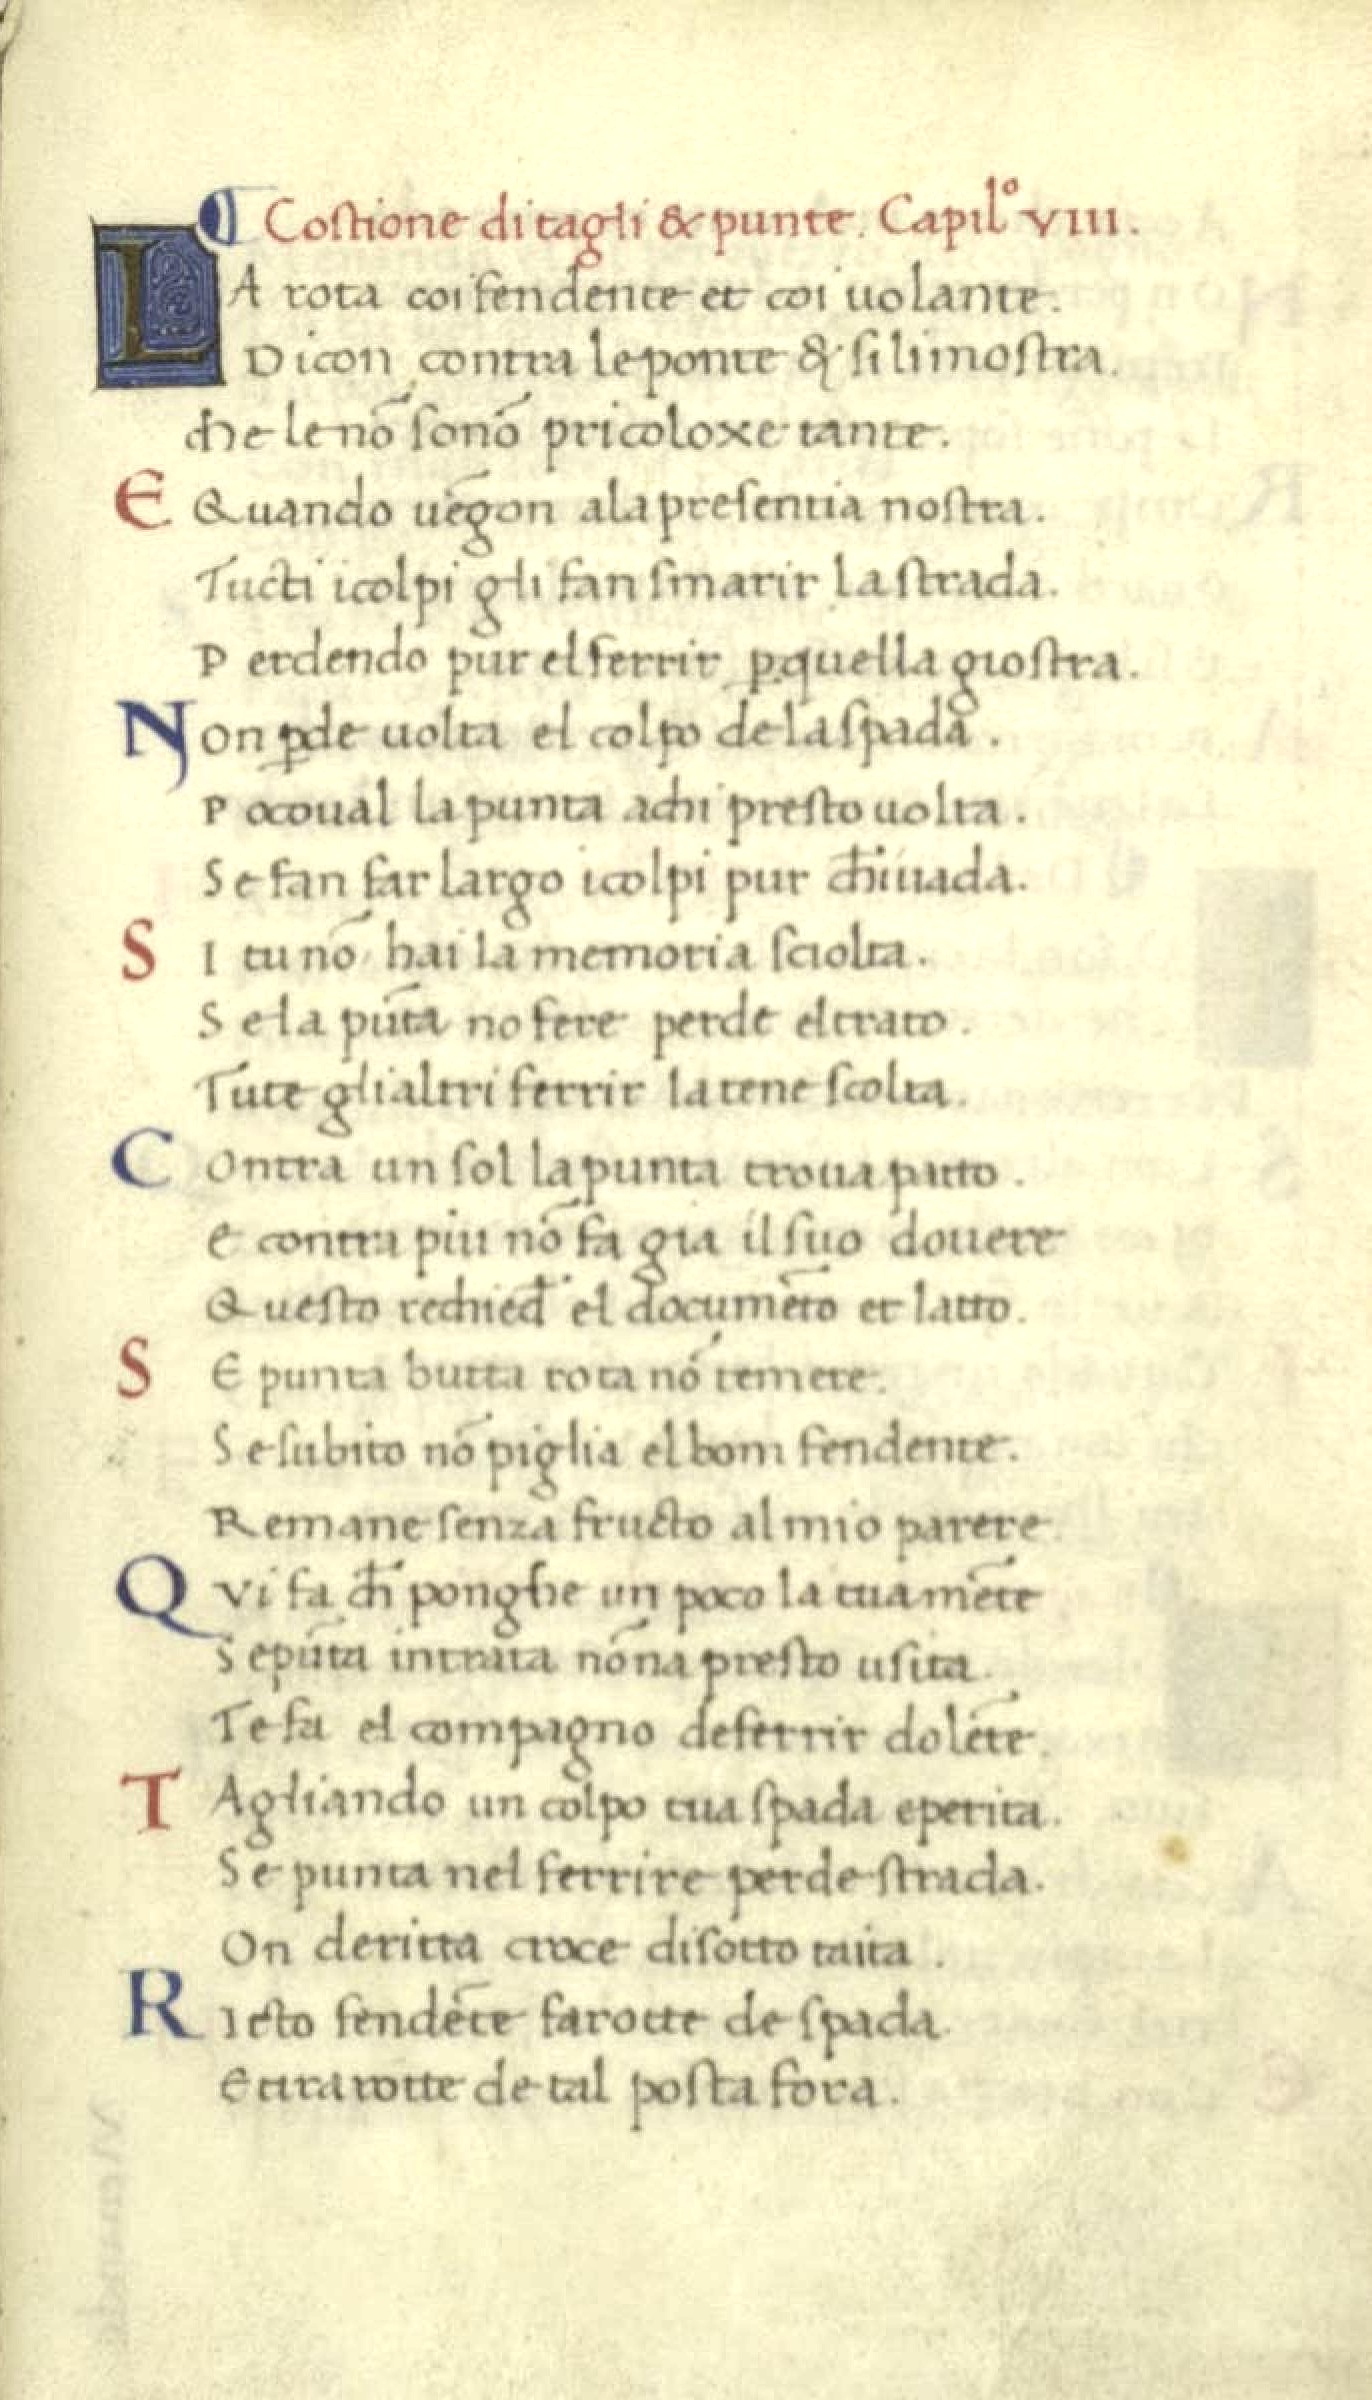 ¶ Costione di tagli & punte. Capil.º VIII.
LA rota coi fendente et coi uolante.
Dicon contra le ponte & si li mostra.
che le nō sonō pricoloxe tante.
E Quando uēgon a la presentia nostra.
Tucti i colpi gli fan smarir la strada.
Perdendo pur el ferrir ꝑ quella giostra.
Non ꝑde uolta el colpo de la spada.
Poco ual la punta a chi presto uolta.
Se fan far largo i colpi pur ch̄ i uada.
SI tu nō hai la memoria sciolta.
Se la pūta no fere perde el trato.
Tute gli altri ferrir la tene scolta.
Contra un sol la punta troua patto.
E contra piu nō fa gia il suo douere
Questo rechied̄ el documēto et latto.
SE punta butta rota nō temere.
Se subito nō piglia el bom fendente.
Remane senza fructo al mio parere.
QVi fa ch̄ ponghe un poco la tua mēte
Se pūta intrata nō na presto usita.
Te fa el compagno de ferrir dolēte.
TAgliando un colpo tua spada e perita.
Se punta nel ferrire perde strada.
On deritta croce di sotto taita.
RIcto fendēte fa rotte de spada.
E tira rotte de tal posta fora.